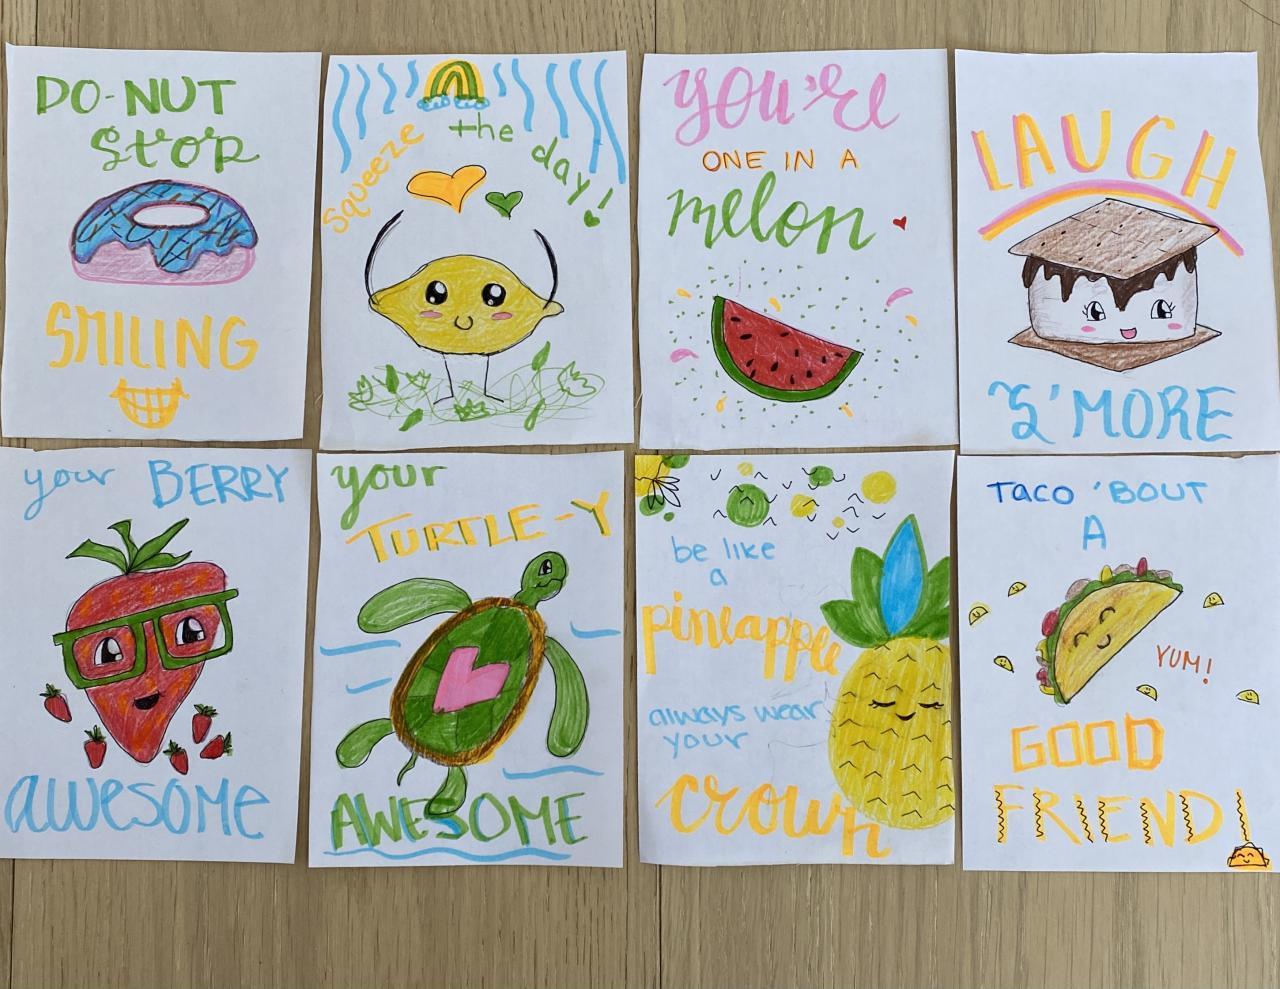 DO-NUT
STOP
SMILING
squeeze
the
day!
you're
ONE IN A
melon
LAUGH
S'MORE
your BERRY
awesome
your
TURTLE-Y
AWESOME
be like
a
pineapple
always wear
your
crown
TACO 'BOUT
A
YUM!
GOOD
FRIEND!